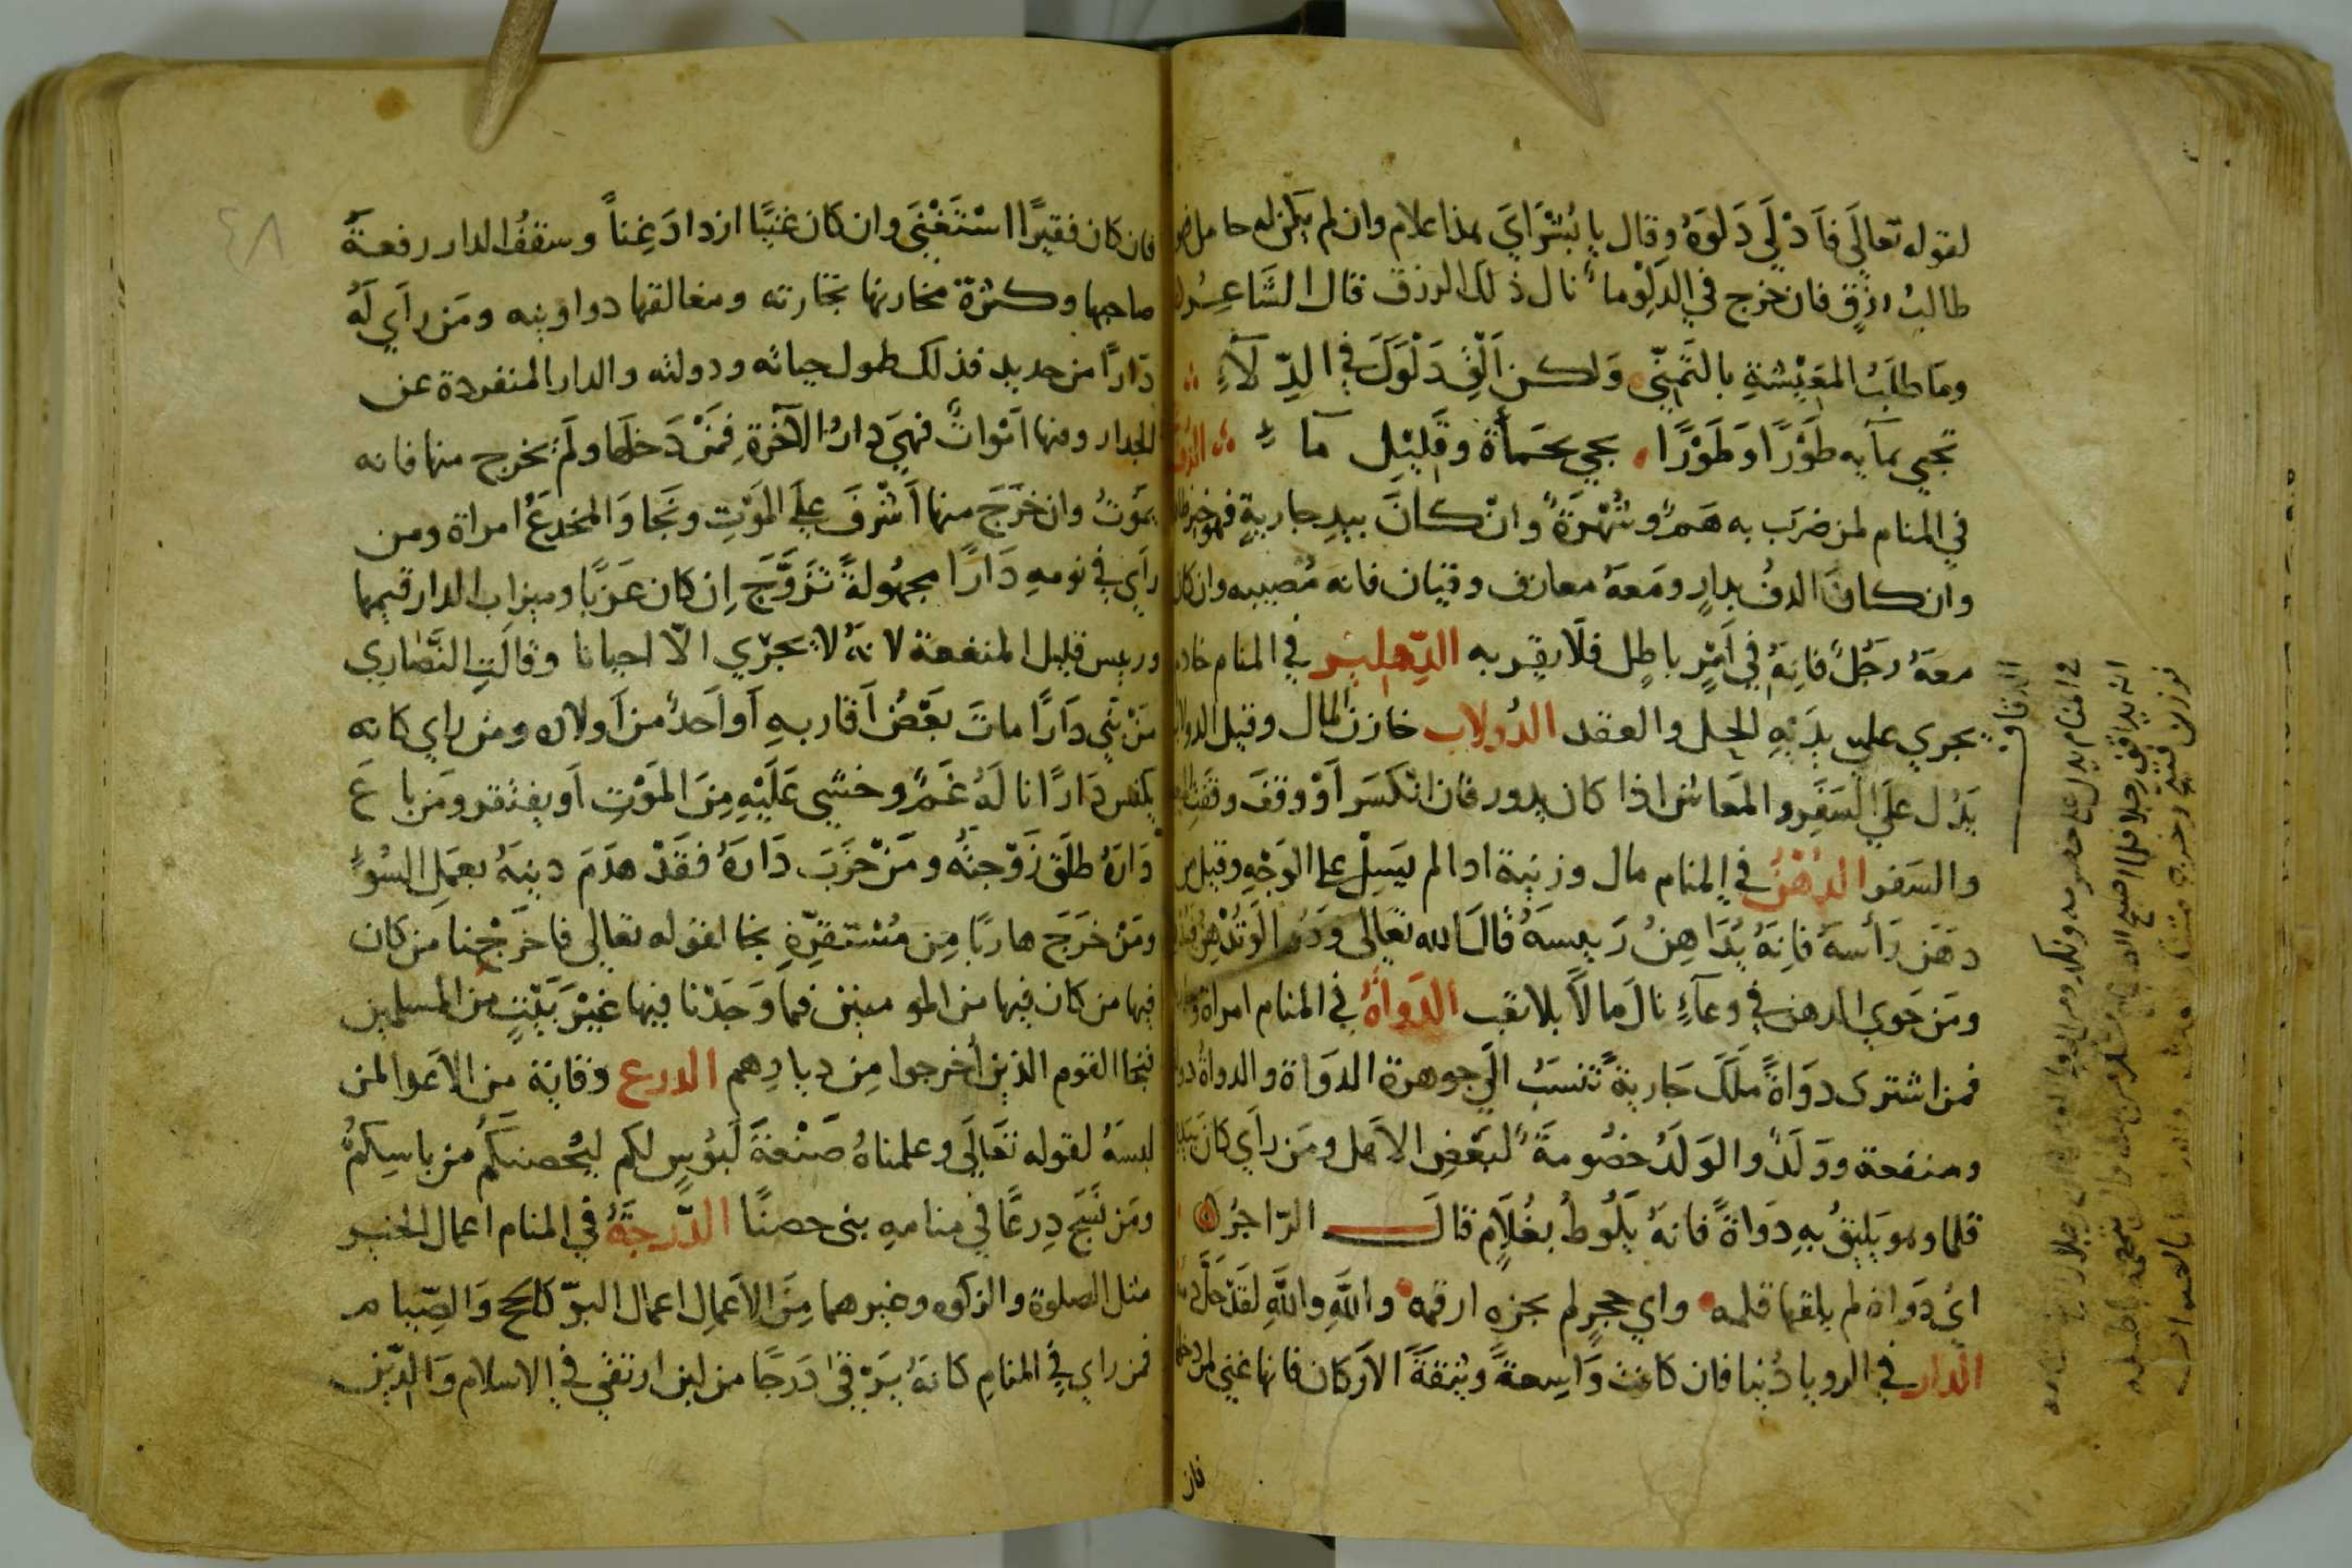 لقوله تعالَى فاَدْلَى دَلوَهُ وقال يا بُشْرَايَ هذا غلام وان لم يكن له حامل
طالبُ رزقٍ فان خرج في الدلوِ ماءٌ نال ذلك الرزق قال الشاعر
ومَا طلَبُ المَعِيْشةِ بالتَّمَنِّي وَلكن اَلْقِ دَلْوَكَ في الدِّلَآءِ
تجيِ بمآيه طَوْرًا وَطَوْرًا يجي بحَمأَةٍ وقَلِيْلِ مآءِ الدف
في المنام لمن ضرَب به هَمٌ وشُهْرَةٌ وانْ كانَ بيدِ جاريةٍ فهو خير
وان كانَ الدفُ بدارٍ ومَعهُ معازف وقيان فانه مُصيبه وان كان
معهُ رَجُلٌ فاِنهُ في اَمْرٍ باطلٍ فلَا يقربه الدِّهليز في المنام خادم
يجري على يدَيْهِ الحل والعقد الدُولاب خازن المال وقيل الدولاب
يَدُل علَى السَفَرِ والمَعاش اذا كان يدور فان انْكَسَر اَوْ وقفَ وقفت
والسَفر الدُهْنُ في المنام مال وزينة اذا لم يَسِلْ على الوَجْهِ وقيل من
دهَن رَأسهُ فاِنهُ يُدَاهِنُ رَييسهُ قالَ الله تعَالى وَدُّوا لَوْ تُدْهِنُ
ومَن حَوي الدهن في وعآءٍ نالَ مالاً بلا تعَب الدَواةُ في المنام امراة
فمن اشترى دوَاةً ملَكَ جَاريةً تنسَبُ الَي جوهرة الدوَاة والدواةُ
ومنفعة ووَلَدٌ والوَلدُ خصُومَةٌ لبَعْضِ الاهل ومَن رأَي كانَ بيده
قلما وهو يَليقُ بهِ دوَاةً فانهُ يَلُوطُ بغُلَامٍ قالَ الرّاجزُ
ايُ دوَاة لم يلقها قلمه واي حجرٍ لم يجزه ارقمه واللهِ واللهِ لقَدْ حَلَّ
الدار في الرويا دُنيا فان كانت وَاسِعةً وثيقةَ الاَركان فانها غني لمن دخلها
فان
الدقاق
في المنام يدل على خصومه ونكد ومن
فان كان فقيرًا اسْتَغْنَى وان كان غنيًا ازدادَ غِناً وسقفُ الدار رفعةُ
صاحبها وكثرة مخازنها تجارته ومغالقها دواوينه ومَن رأَي لَهُ
دَارًا من حديد فذلك طول حياته ودولته والدار المنفردة عن
الجدار ومنها اَمْواتٌ فهيَ دارُ الآخرةِ فمَنْ دَخلَها ولَمْ يخرج منها فانه
يمَوتُ وان خرَجَ منها اَشْرفَ علَي المَوْتِ ونَجا وَالمخدَعُ امراة ومن
راَي في نومهِ دَارًا مجهُولةً تزَوَّجَ اِن كان عَزَبًا وميزاب الدار قيمها
ورييس قليل المنفعة لانهُ لا يجْرِي الّا احيانا وقالَتِ النَّصَاري
مَنْ بَنَي دَارًا ماتَ بعَضُ اَقاربهِ اَو اَحدٌ من اَولاده ومن راي كانه
يكنس دَارًا نالَهُ غَمٌ وخشي عَلَيْهِ مِنَ المَوْتِ اَو يفتقر ومَن باعَ
دَارهُ طلَق زَوْجتهُ ومَنْ خَرَبَ دَارهُ فقَدْ هدَمَ دينهُ بعمَل السُوءِ
ومَنْ خرَجَ هاربًا مِن مُسْتقرِّهِ نجا لقوله تعالي فاخرَجْنا من كان
فيها من كان فيها من المومنين فما وَجَدْنا فيها غيْرَ بَيْتٍ من المسلمين
فنجا القوم الذين اُخرجوا مِن ديارِهم الدرع وقاية من الاعدا لمن
لبسهُ لقوله تعَالَي وعلمناهُ صَنْعةَ لَبُوسٍ لكم ليُحْصنَكُم من باسِكمْ
ومَن نَسَجَ دِرعًا في منامهِ بنى حصنًا الدَّرجَةُ في المنام اعمال الخير
مثل الصلوة والزكوه وغيرهما مِنَ الاَعمال اعمال البرّ كالحج وَالصِّيام
فمن راي في المنام كانهُ يَرْقي دَرجًا من لبن ارتقي في الاسلام وَالدّين
٤٨